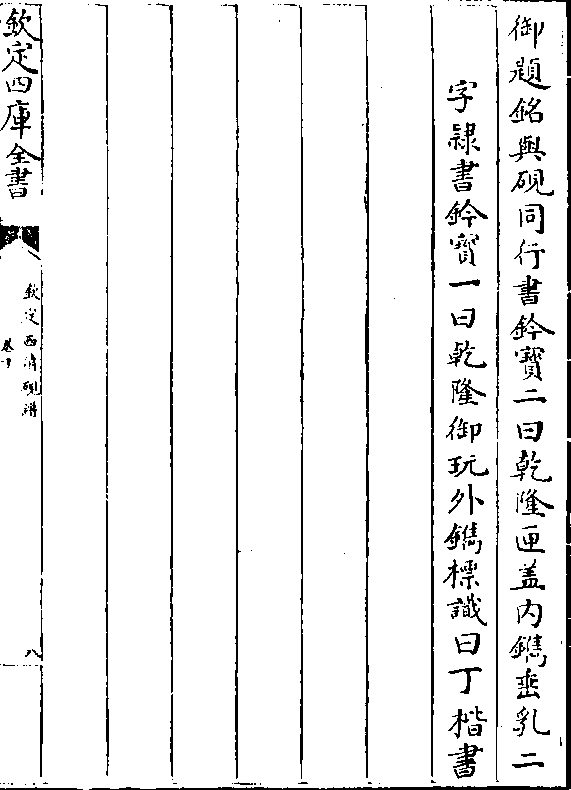 御題銘與硯同行書鈐寳二曰乾隆匣盖内鐫垂乳二
字隸書鈐寳一曰乾隆御玩外鐫標識曰丁楷書
欽定四庫全書
欽定西清硯譜
卷十
八